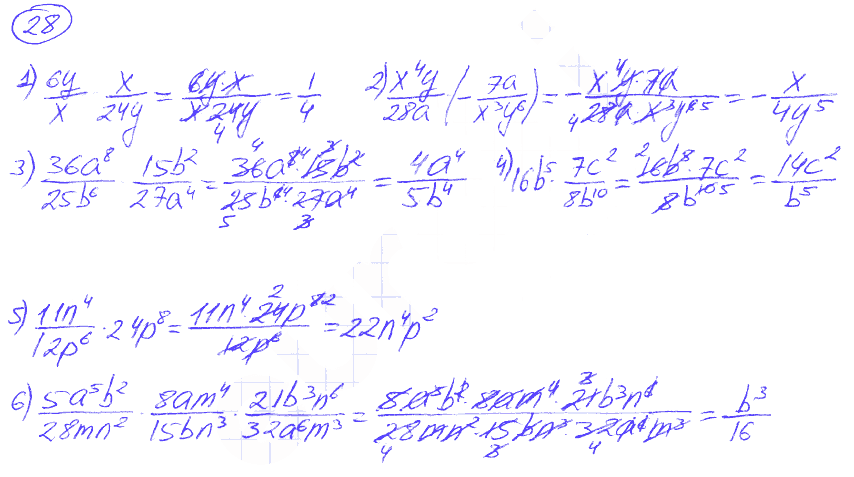 28
1) 6y/x · x/24y = 6y·x/x·24y = 1/4 2) x⁴y/28a · (−7a/x³y⁶) = −x⁴y·7a/28a·x³y⁶ = −x/4y⁵
3) 36a⁸/25b⁶ · 15b²/27a⁴ = 36a⁸·15b²/25b⁶·27a⁴ = 4a⁴/5b⁴ 4) 16b⁵ · 7c²/8b¹⁰ = 16b⁵·7c²/8b¹⁰ = 14c²/b⁵
5) 11n⁴/12p⁶ · 24p⁸ = 11n⁴·24p⁸/12p⁶ = 22n⁴p²
6) 5a⁵b²/28mn² · 8am⁴/15bn³ · 21b³n⁶/32a⁶m³ = 5a⁵b²·8am⁴·21b³n⁶/28mn²·15bn³·32a⁶m³ = b³/16